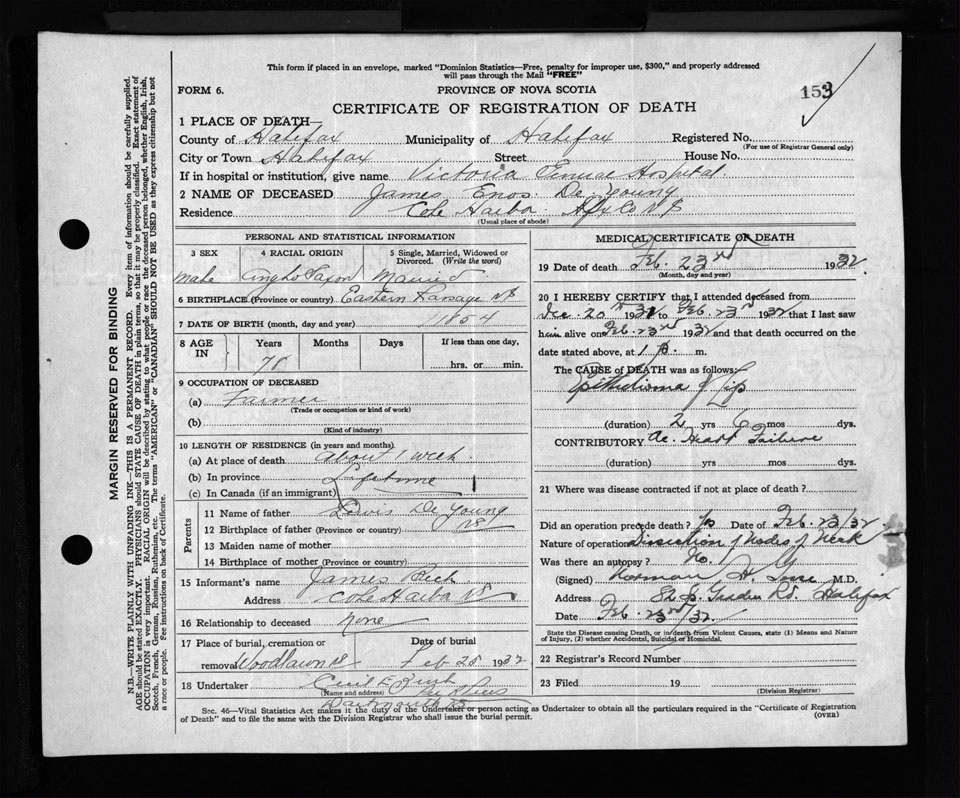 This form if placed in an envelope, marked "Dominion Statistics—Free, penalty for improper use, $300," and properly addressed
will pass through the Mail "FREE"
FORM 6.
PROVINCE OF NOVA SCOTIA
153
CERTIFICATE OF REGISTRATION OF DEATH
1 PLACE OF DEATH—
County of Halifax Municipality of Halifax Registered No.
(For use of Registrar General only)
City or Town Halifax Street House No.
If in hospital or institution, give name Victoria General Hospital
2 NAME OF DECEASED James Enos De Young
Residence Cole Harbor Hfx Co NS
(Usual place of abode)
PERSONAL AND STATISTICAL INFORMATION
3 SEX 4 RACIAL ORIGIN 5 Single, Married, Widowed or
Divorced. (Write the word)
male Anglo Saxon Married
6 BIRTHPLACE (Province or country) Eastern Passage NS
7 DATE OF BIRTH (month, day and year) 1854
8 AGE
IN
Years Months Days If less than one day,
78 hrs. or min.
9 OCCUPATION OF DECEASED
(a) Farmer
(Trade or occupation or kind of work)
(b)
(Kind of industry)
10 LENGTH OF RESIDENCE (in years and months)
(a) At place of death About 1 week
(b) In province Lifetime
(c) In Canada (if an immigrant)
Parents
11 Name of father Lewis De Young
12 Birthplace of father (Province or country) NS
13 Maiden name of mother
14 Birthplace of mother (Province or country)
15 Informant's name James
Address Cole Harbor NS
16 Relationship to deceased none
17 Place of burial, cremation or Date of burial
removal Woodlawn Feb 25 1932
18 Undertaker Cecil E
(Name and address)
Dartmouth NS
MEDICAL CERTIFICATE OF DEATH
19 Date of death Feb. 23rd 1932
(Month, day and year)
20 I HEREBY CERTIFY that I attended deceased from
Dec. 20th 1931 to Feb. 23rd 1932 that I last saw
him alive on Feb. 23rd 1932 and that death occurred on the
date stated above, at 1 p. m.
The CAUSE of DEATH was as follows:
Epithelioma of Lip
(duration) 2 yrs 6 mos dys.
CONTRIBUTORY Ac. Heart Failure
(duration) yrs mos dys.
21 Where was disease contracted if not at place of death?
Did an operation precede death? Yes Date of Feb. 23/32
Nature of operation Dissection of Nodes of Neck
Was there an autopsy? No.
(Signed) Norman H. M.D.
Address Rd. Halifax
Date Feb. 23rd/32.
State the Disease causing Death, or in death from Violent Causes, state (1) Means and Nature
of Injury, (2) whether Accidental, Suicidal or Homicidal.
22 Registrar's Record Number
23 Filed 19
(Division Registrar)
Sec. 46—Vital Statistics Act makes it the duty of the Undertaker or person acting as Undertaker to obtain all the particulars required in the "Certificate of Registration
of Death" and to file the same with the Division Registrar who shall issue the burial permit.
(OVER)
MARGIN RESERVED FOR BINDING
N.B.—WRITE PLAINLY WITH UNFADING INK—THIS IS A PERMANENT RECORD. Every item of information should be carefully supplied.
AGE should be stated EXACTLY. PHYSICIANS should STATE CAUSE OF DEATH in plain terms, so that it may be properly classified. Exact statement of
OCCUPATION is very important. RACIAL ORIGIN will be described by stating to what people or race the deceased person belonged, whether English, Irish,
Scotch, French, German, Russian, Ruthenian, etc. The terms "AMERICAN" or "CANADIAN" SHOULD NOT BE USED as they express citizenship but not
a race or people. Fee instructions on back of Certificate.